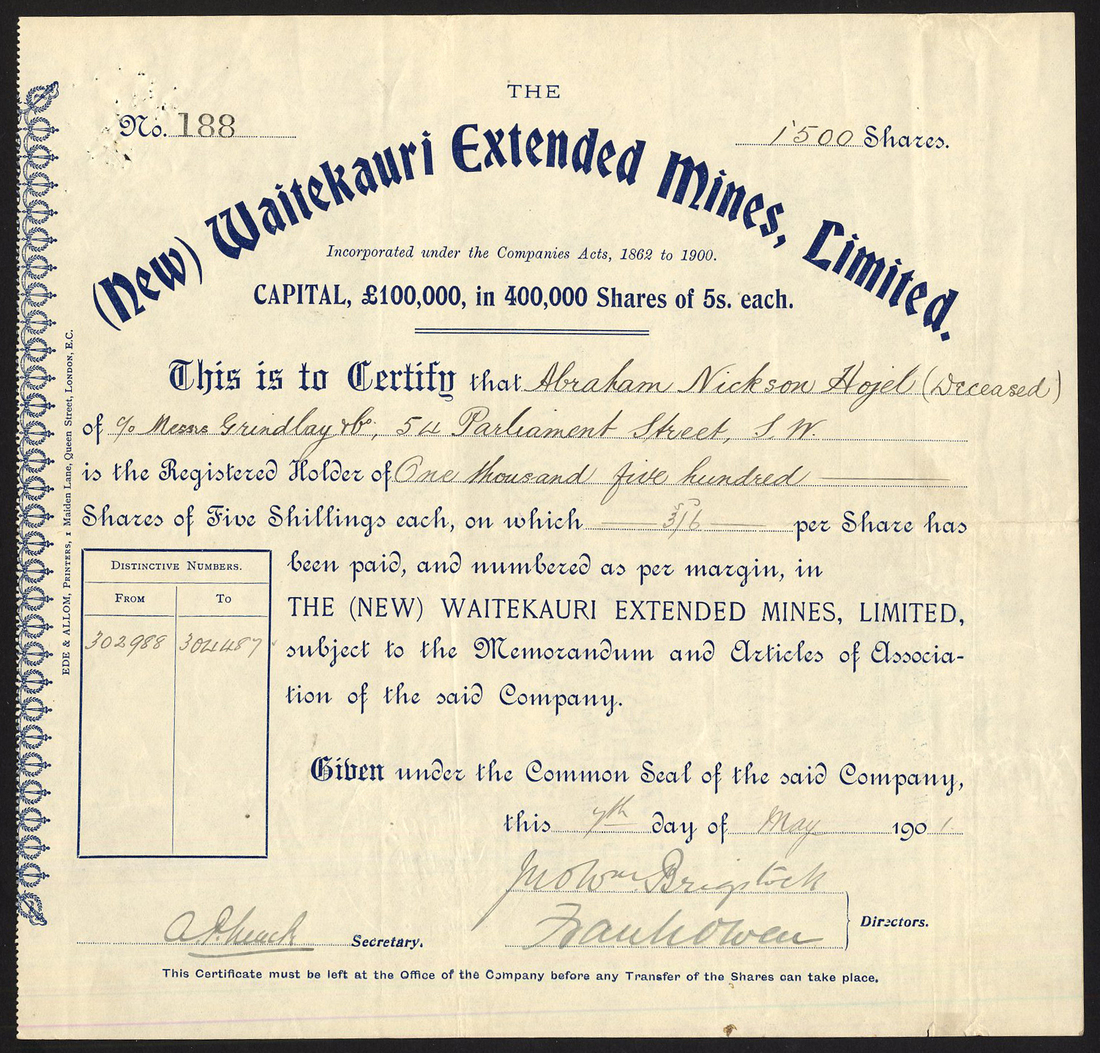 THE
No. 188
1500 Shares.
(New) Waitekauri Extended Mines, Limited.
Incorporated under the Companies Acts, 1862 to 1900.
CAPITAL, £100,000, in 400,000 Shares of 5s. each.
This is to Certify that Abraham Nickson Hojel (Deceased)
of c/o Messrs Grindlay & Co, 54 Parliament Street, S.W.
is the Registered Holder of One thousand five hundred
Shares of Five Shillings each, on which 3/6 per Share has
been paid, and numbered as per margin, in
THE (NEW) WAITEKAURI EXTENDED MINES, LIMITED,
subject to the Memorandum and Articles of Associa-
tion of the said Company.
DISTINCTIVE NUMBERS.
FROM TO
302988 304487
Given under the Common Seal of the said Company,
this 7th day of May 1901
Jno Wm Brigstock
Frank Owen
Directors.
Secretary.
This Certificate must be left at the Office of the Company before any Transfer of the Shares can take place.
EDE & ALLOM, PRINTERS, 1 Maiden Lane, Queen Street, LONDON, E.C.